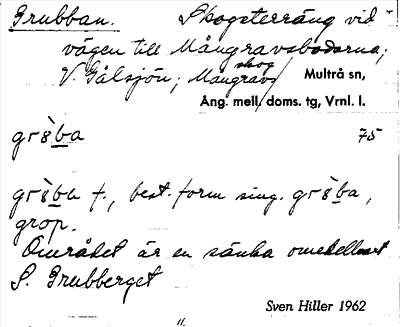 Grubban. Skogsterräng vid
vägen till Mångravsbodarna;
V. Gålsjön; Mångravs skog
Multrå sn,
Ång. mell. doms. tg, Vrnl. l.
gròba 75
gròba f., best. form sing. gròba,
grop.
Området är en sänka omedelbart
S. Grubberget
Sven Hiller 1962